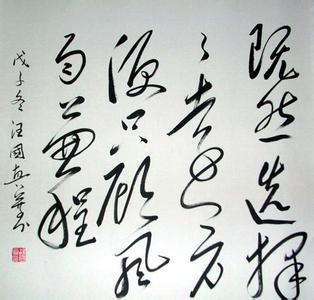 既然选择
了遠方
便只顾风
雨兼程
戊子冬汪國真並书